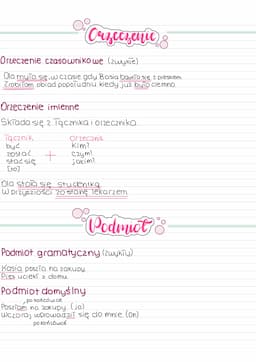 Orzeczenie
Orzeczenie czasownikowe (zwykłe)
Ola myła się, w czasie gdy Basia bawiła się z pieskiem.
Zrobiłam obiad popołudniu kiedy już było ciemno.
Orzeczenie imienne
Składa się z łącznika i orzecznika
łącznik orzecznik
być kim?
zostać + czym?
stać się jakim?
(są)
Ola stała się studentką
W przyszłości zostanę lekarzem
Podmiot
Podmiot gramatyczny (zwykły)
Kasia poszła na zakupy
Pies uciekł z domu
Podmiot domyślny
po końcówce
Poszłam na zakupy (ja)
Wczoraj wprowadził się do mnie (on)
po końcówce